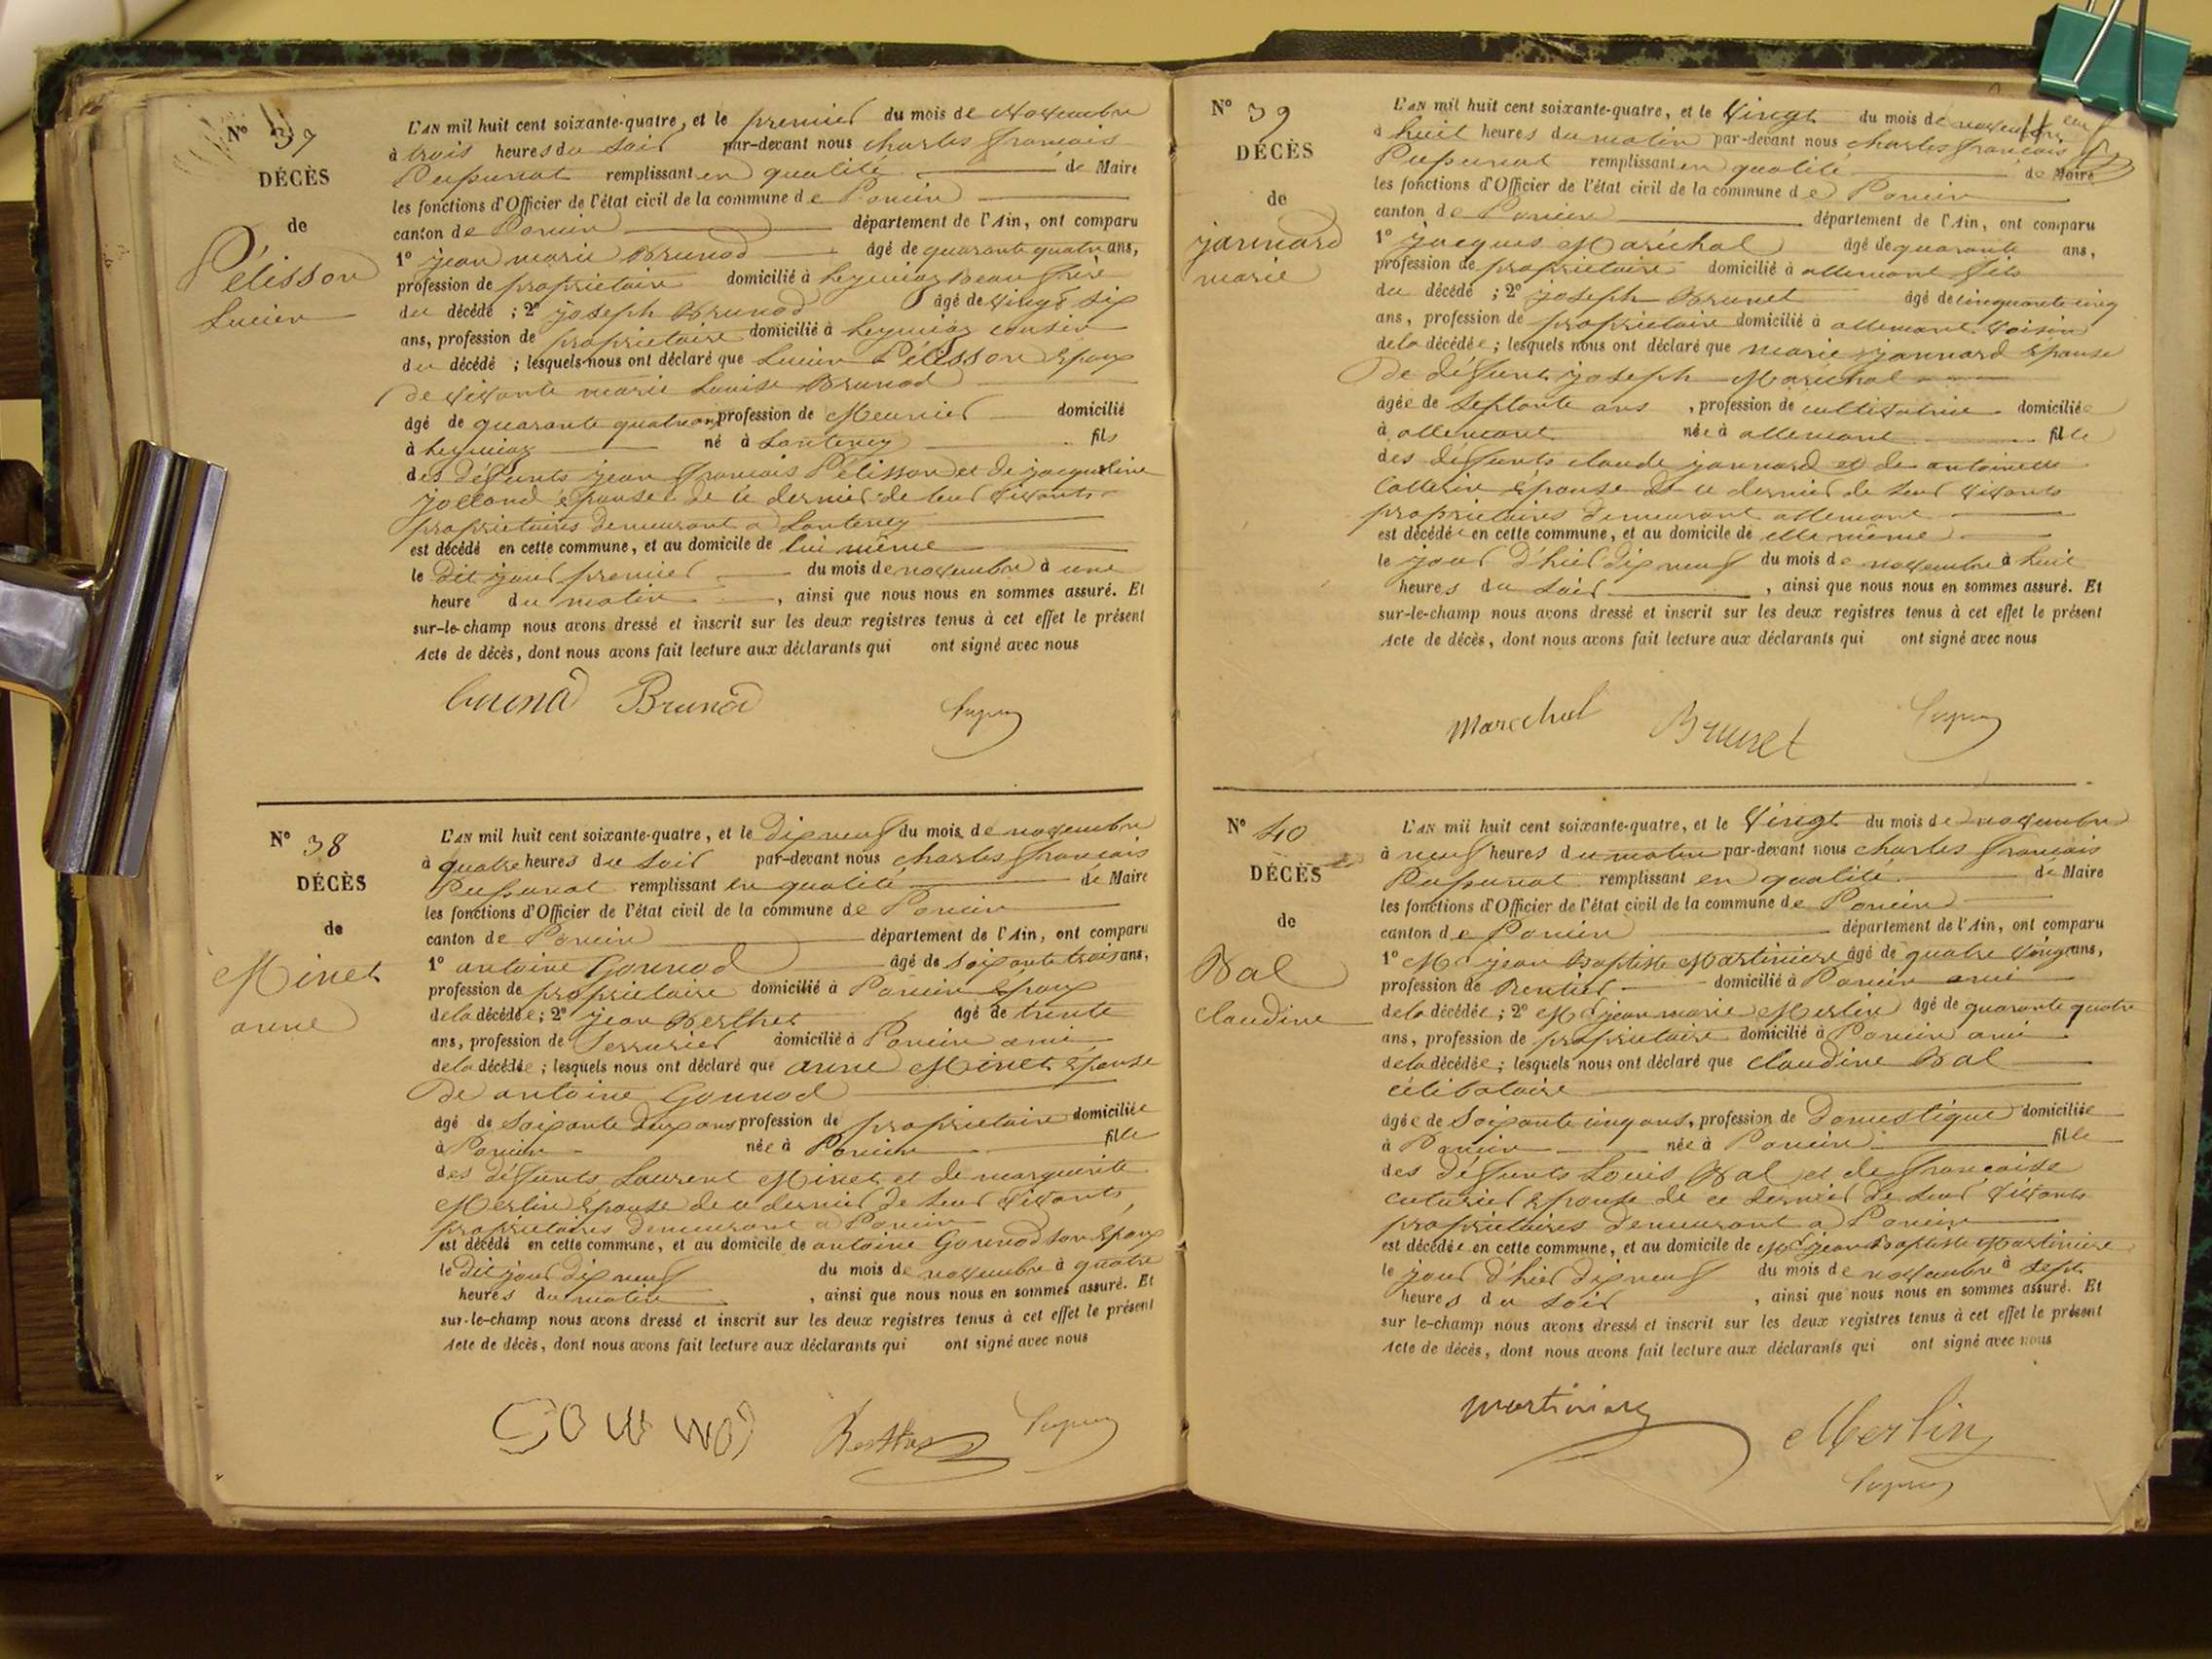 N° 37
DÉCÈS
de
Pélisson
Lucien
L'AN mil huit cent soixante-quatre, et le premier du mois de Novembre
à trois heures du soir par-devant nous charles françois
Pupunat remplissant en qualité de Maire
les fonctions d'Officier de l'état civil de la commune de Poncin
canton de Poncin département de l'Ain, ont comparu
1° jean marie Brunod âgé de quarante quatre ans,
profession de propriétaire domicilié à Leymiaz Beau frère
du décédé ; 2° joseph Brunod âgé de vingt six
ans, profession de propriétaire domicilié à Leymiaz cousin
du décédé ; lesquels nous ont déclaré que Lucien Pélisson Epoux
de vivante marie Louise Brunod
âgé de quarante quatre ans profession de Meunier domicilié
à Leymiaz né à Lantenay fils
des défunts jean françois Pélisson et de jacqueline
jolland épouse de ce dernier de leur vivants
propriétaires demeurant a Lantenay
est décédé en cette commune, et au domicile de lui même
le dit jour premier du mois de novembre à une
heure du matin , ainsi que nous nous en sommes assuré. Et
sur-le-champ nous avons dressé et inscrit sur les deux registres tenus à cet effet le présent
Acte de décès, dont nous avons fait lecture aux déclarants qui ont signé avec nous
Brunod Brunod
N° 38
DÉCÈS
de
Minet
anne
L'AN mil huit cent soixante-quatre, et le dix neuf du mois de novembre
à quatre heures du soir par-devant nous charles françois
Pupunat remplissant en qualité de Maire
les fonctions d'Officier de l'état civil de la commune de Poncin
canton de Poncin département de l'Ain, ont comparu
1° antoine Gounod âgé de soixante trois ans,
profession de propriétaire domicilié à Poncin Epoux
de la décédée ; 2° jean Berthet âgé de trente
ans, profession de Serrurier domicilié à Poncin ami
de la décédée ; lesquels nous ont déclaré que anne Minet Epouse
de antoine Gounod
âgé de soixante deux ans profession de propriétaire domiciliée
à Poncin née à Poncin fille
des défunts Laurent Minet et de marguerite
Merlin Epouse de ce dernier de leur vivants
propriétaires demeurant a Poncin
est décédé en cette commune, et au domicile de antoine Gounod son Epoux
le dit jour dix neuf du mois de novembre à quatre
heures du matin , ainsi que nous nous en sommes assuré. Et
sur-le-champ nous avons dressé et inscrit sur les deux registres tenus à cet effet le présent
Acte de décès, dont nous avons fait lecture aux déclarants qui ont signé avec nous
N° 39
DÉCÈS
de
jannard
marie
L'AN mil huit cent soixante-quatre, et le Vingt du mois de novembre
à huit heures du matin par-devant nous charles françois
Pupunat remplissant en qualité de Maire
les fonctions d'Officier de l'état civil de la commune de Poncin
canton de Poncin département de l'Ain, ont comparu
1° jacques Maréchal âgé de quarante ans,
profession de propriétaire domicilié à allement fils
du décédé ; 2° joseph Brunet âgé de cinquante cinq
ans, profession de propriétaire domicilié à allement voisin
de la décédée ; lesquels nous ont déclaré que marie jannard Epouse
de défunt joseph Maréchal
âgée de septante ans , profession de cultivatrice domiciliée
à allement née à allement fille
des défunts claude jannard et de antoinette
Epouse de ce dernier de leur vivants
propriétaires demeurant allement
est décédée en cette commune, et au domicile de elle même
le jour d'hier dix neuf du mois de novembre à huit
heures du soir , ainsi que nous nous en sommes assuré. Et
sur-le-champ nous avons dressé et inscrit sur les deux registres tenus à cet effet le présent
Acte de décès, dont nous avons fait lecture aux déclarants qui ont signé avec nous
Marechal Brunet
N° 40
DÉCÈS
de
Bal
claudine
L'AN mil huit cent soixante-quatre, et le Vingt du mois de novembre
à neuf heures du matin par-devant nous charles françois
Pupunat remplissant en qualité de Maire
les fonctions d'Officier de l'état civil de la commune de Poncin
canton de Poncin département de l'Ain, ont comparu
1° Mr jean Baptiste Martiniere âgé de quatre vingt ans,
profession de Rentier domicilié à Poncin ami
de la décédée ; 2° Mr jean marie Merlin âgé de quarante quatre
ans, profession de propriétaire domicilié à Poncin ami
de la décédée ; lesquels nous ont déclaré que claudine Bal
célibataire
âgée de soixante cinq ans, profession de Domestique domiciliée
à Poncin née à Poncin fille
des défunts Louis Bal et de françoise
Epouse de ce dernier de leur vivants
propriétaires demeurant a Poncin
est décédée en cette commune, et au domicile de Mr jean Baptiste Martiniere
le jour d'hier dix neuf du mois de novembre à sept
heures du soir , ainsi que nous nous en sommes assuré. Et
sur le-champ nous avons dressé et inscrit sur les deux registres tenus à cet effet le présent
Acte de décès, dont nous avons fait lecture aux déclarants qui ont signé avec nous
Martiniere
Merlin